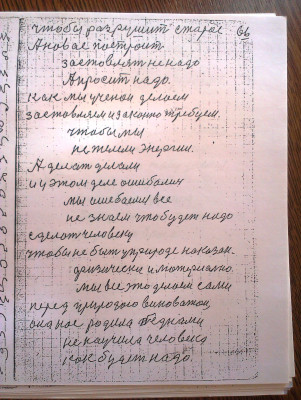 чтобы разрушит старое 66
А новое построит
заставлят не надо
А просит надо.
как мы ученои делаем
заставляем и законно требуем.
чтобы мы
не имели энергии.
А делат делали
и и этом деле ошибалис
мы ошибаемс все
не знаем что будет надо
сделат человеку
чтобы не быт у природе наказан.
физически и материално.
мы все это делаем сами
перед природою виноватои
она нас родила
не научила человека
как будет надо.